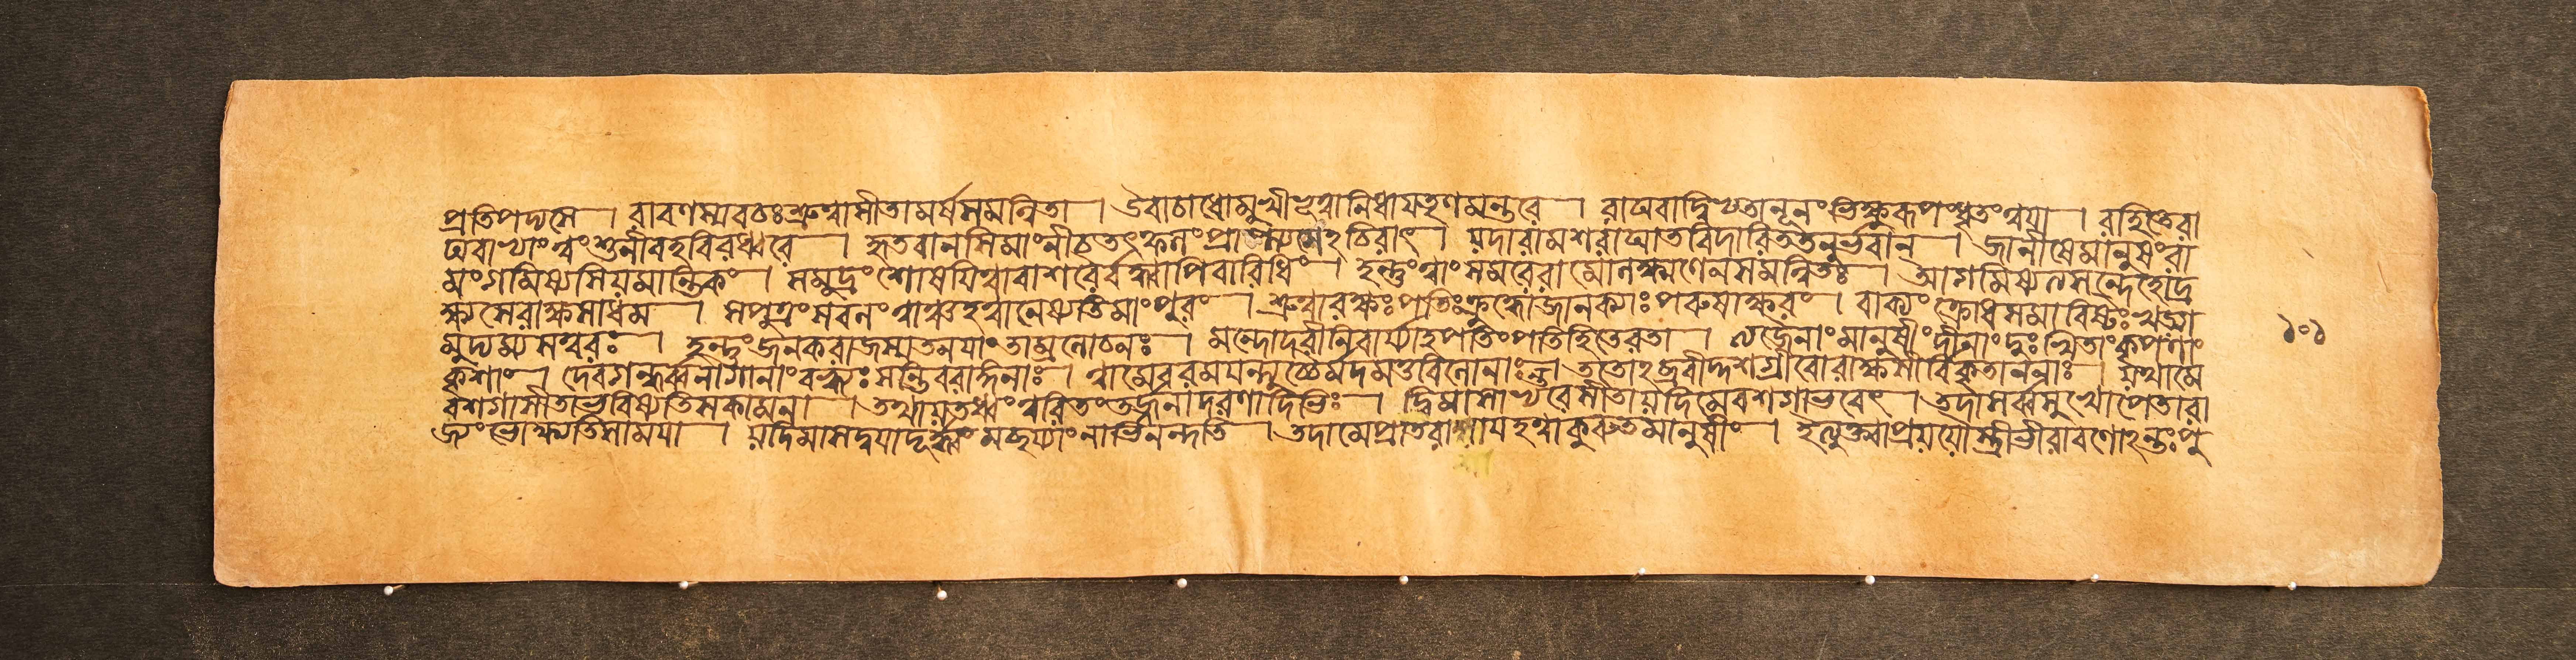 প্রতিপদ্যসে । রাবণস্যবচঃশ্রুত্বাসীতামর্ষসমন্বিতা । উবাচাধোমুখীভূত্বানিধায়তৃণমন্তরে । রাঘবাদ্বিভ্যতানূনংভিক্ষুরূপংধৃতংত্বয়া । রহিতেরা
ঘবাভ্যাংত্বংশুনীবহবিরধ্বরে । হৃতবানসিমাংনীচতৎফলংপ্রাপ্স্যসেঽচিরাৎ । যদারামশরাঘাতবিদারিততনুর্ভবান্ । জানীষেমানুষংরা
মংগমিষ্যসিযমান্তিকং । সমুদ্রংশোষয়িত্বাবাশরৈর্বদ্ধ্বাপিবারিধিং । হন্তুংত্বাংসমরেরামোলক্ষ্মণেনসমন্বিতঃ । আগমিষ্যত্যসন্দেহোদ্র
ক্ষ্যসেরাক্ষসাধম । সপুত্রংসবলংত্বাঞ্চহত্বানেষ্যতিমাংপুরং । শ্রুত্বারক্ষঃপতিঃক্রুদ্ধোজানক্যাঃপরুষাক্ষরং । বাক্যংক্রোধসমাবিষ্টঃখড্গ
মুদ্যম্যসত্বরঃ । হন্তুংজনকরাজস্যতনয়াংতাম্রলোচনঃ । মন্দোদরীনিবার্য্যাহপতিংপতিহিতেরতা । ত্যজৈনাংমানুষীংদীনাংদুঃখিতাংকৃপণাং
কৃশাং । দেবগন্ধর্ব্বনাগানাংবহ্ব্যঃসন্তিবরাঙ্গনাঃ । ত্বামেববরময়ন্ত্যুচ্চৈর্মদমত্তবিলোচনাঃ । ততোঽব্রবীদ্দশগ্রীবোরাক্ষসীর্বিকৃতাননাঃ । যথামে
বশগাসীতাভবিষ্যতিসকামনা । তথাযতধ্বংত্বরিতংতর্জনাদরণাদিভিঃ । দ্বিমাসাভ্যন্তরেসীতাযদিমেবশগাভবেৎ । তদাসর্ব্বসুখোপেতারা
জ্যংভোক্ষ্যতিসাময়া । যদিমাসদ্বয়াদূর্দ্ধ্বংমচ্ছয্যাংনাভিনন্দতি । তদামেপ্রাতরাশায়হত্বাকুরুতমানুষীং । ইত্যুক্ত্বাপ্রযযৌস্ত্রীভীরাবণোঽন্তঃপু
১০১